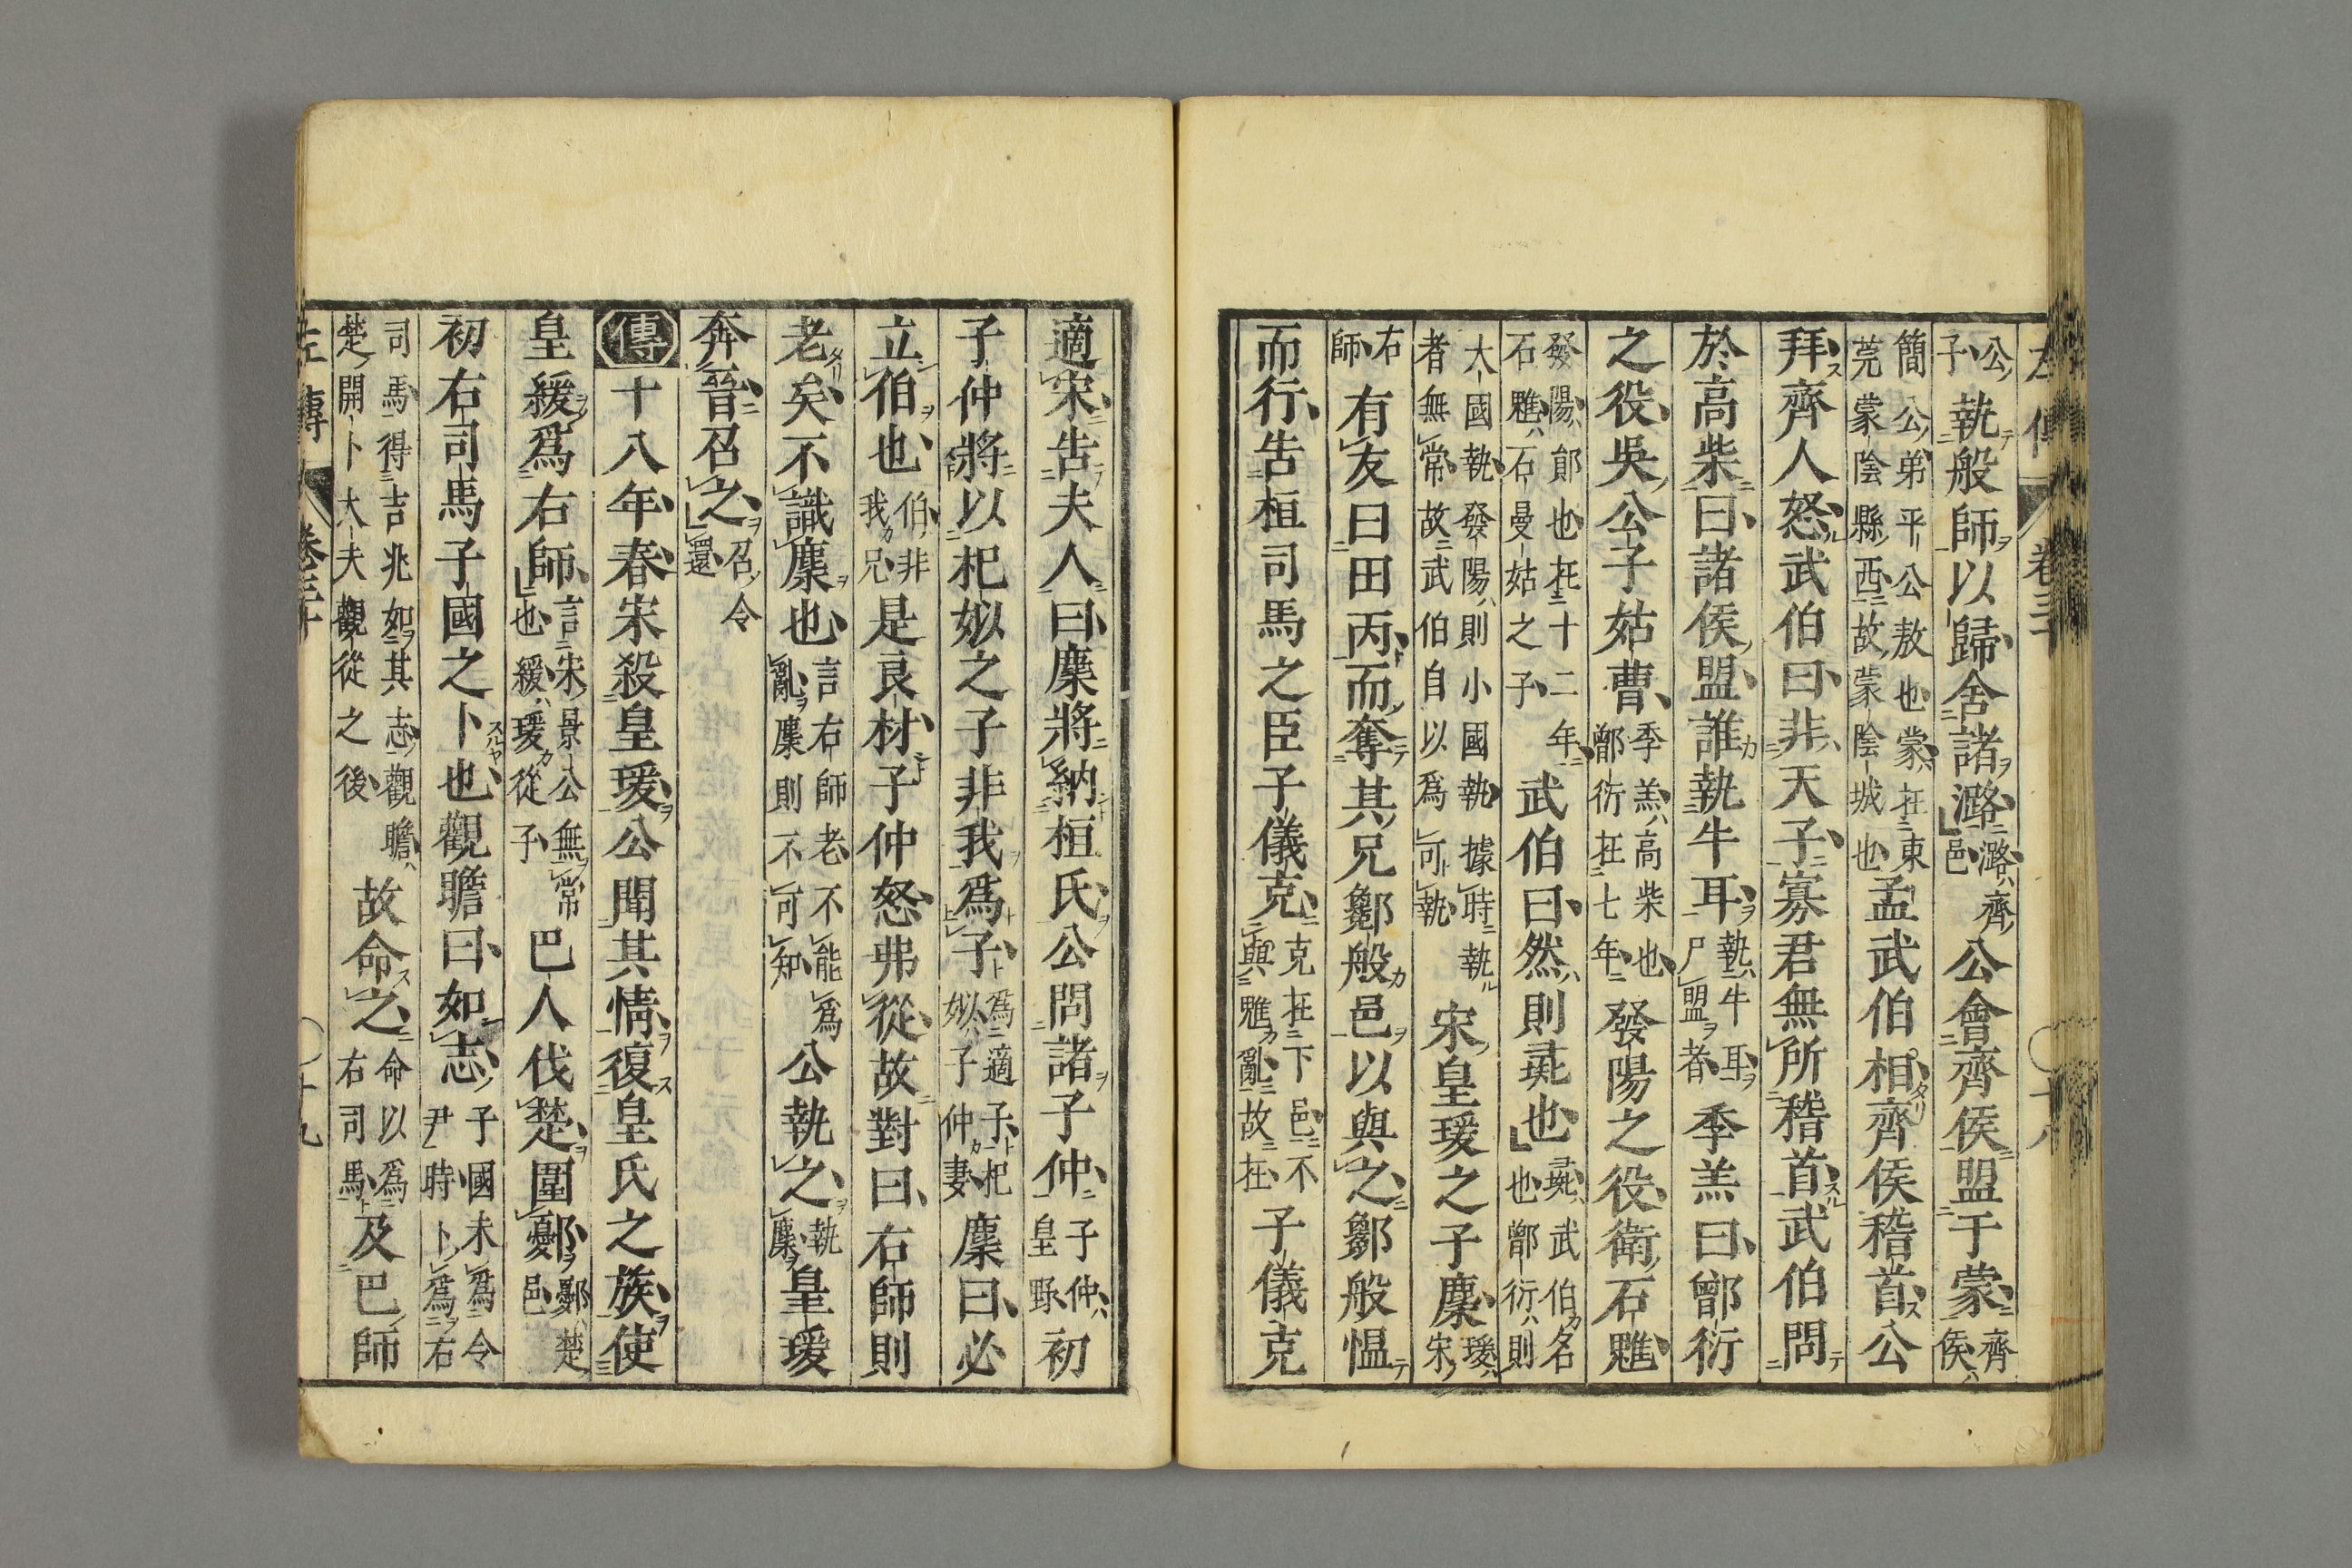 左傳 卷三十 十八
公子執般師以歸舍諸潞潞齊邑公會齊侯盟于蒙齊侯
簡公弟平公敖也蒙在東莞蒙陰縣西故蒙陰城也孟武伯相齊侯稽首公
拜齊人怒武伯曰非天子寡君無所稽首武伯問
於高柴曰諸侯盟誰執牛耳執牛耳尸盟者季羔曰鄫衍
之役吳公子姑曹季羔高柴也鄫衍在七年發陽之役衛石魋
發陽鄖也在十二年石魋石曼姑之子武伯曰然則彘也彘武伯名也鄫衍則
大國執發陽則小國執據時執者無常故武伯自以爲可執宋皇瑗之子麇瑗宋
右師有友曰田丙而奪其兄酁般邑以與之酁般慍
而行告桓司馬之臣子儀克克在下邑不與魋亂故在子儀克
適宋告夫人曰麇將納桓氏公問諸子仲子仲皇野初
子仲將以杞姒之子非我爲子爲適子杞姒子仲妻麇曰必
立伯也伯非我兄是良材子仲怒弗從故對曰右師則
老矣不識麇也言右師老不能爲亂麇則不可知公執之執麇皇瑗
奔晉召之召令還
傳十八年春宋殺皇瑗公聞其情復皇氏之族使
皇緩爲右師言宋景公無常也緩瑗從子巴人伐楚圍鄾鄾楚邑
初右司馬子國之卜也觀瞻曰如志子國未爲令尹時卜爲右
司馬得吉兆如其志觀瞻楚開卜大夫觀從之後故命之命以爲右司馬及巴師
左傳 卷三十 十九